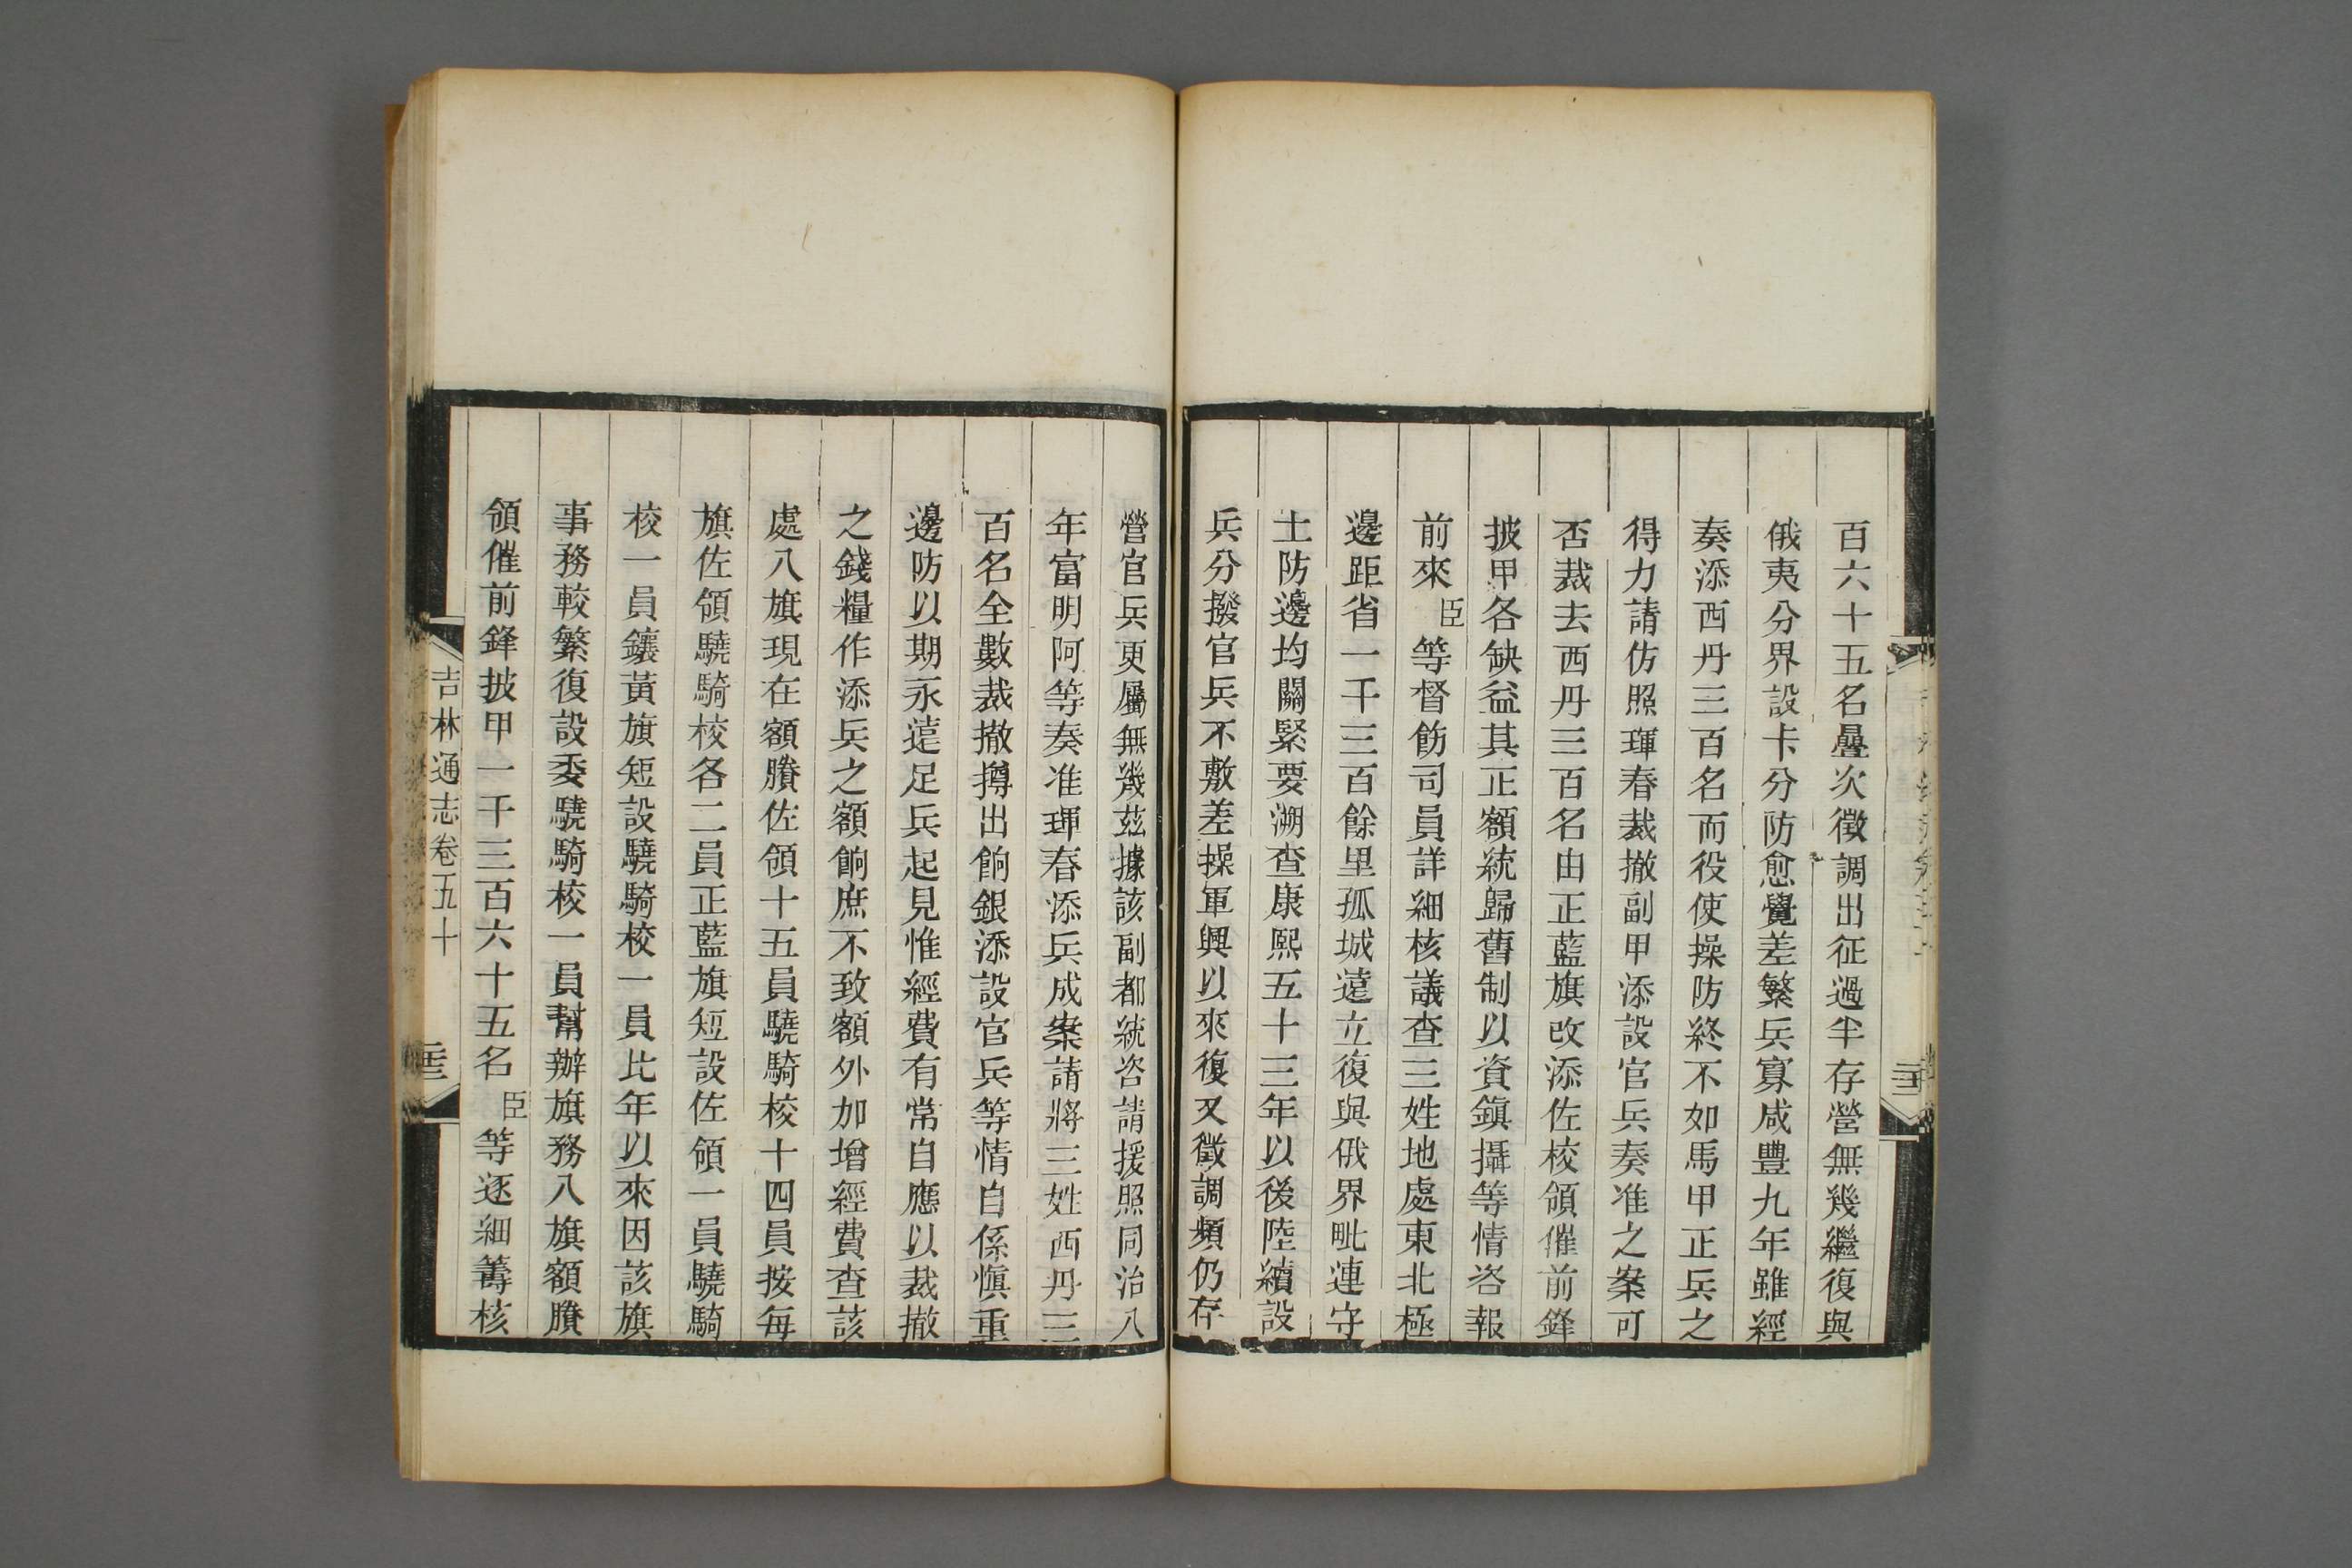 百六十五名曡次徵調出征過半存營無幾繼復與
俄夷分界設卡分防愈覺差繁兵寡咸豐九年雖經
奏添西丹三百名而役使操防終不如馬甲正兵之
得力請仿照琿春裁撤副甲添設官兵奏准之案可
否裁去西丹三百名由正藍旗改添佐校領催前鋒
披甲各缺益其正額統歸舊制以資鎭攝等情咨報
前來臣等督飭司員詳細核議查三姓地處東北極
邊距省一千三百餘里孤城遠立復與俄界毗連守
土防邊均關緊要溯查康熙五十三年以後陸續設
兵分撥官兵不敷差操軍興以來復又徵調頻仍存
營官兵更屬無幾茲據該副都統咨請援照同治八
年富明阿等奏准琿春添兵成案請將三姓西丹三
百名全數裁撤撙出餉銀添設官兵等情自係愼重
邊防以期永遠足兵起見惟經費有常自應以裁撤
之錢糧作添兵之額餉庶不致額外加增經費查該
處八旗現在額賸佐領十五員驍騎校十四員按每
旗佐領驍騎校各二員正藍旗短設佐領一員驍騎
校一員鑲黃旗短設驍騎校一員比年以來因該旗
事務較繁復設委驍騎校一員幫辦旗務八旗額賸
領催前鋒披甲一千三百六十五名臣等逐細籌核
吉林通志卷五十